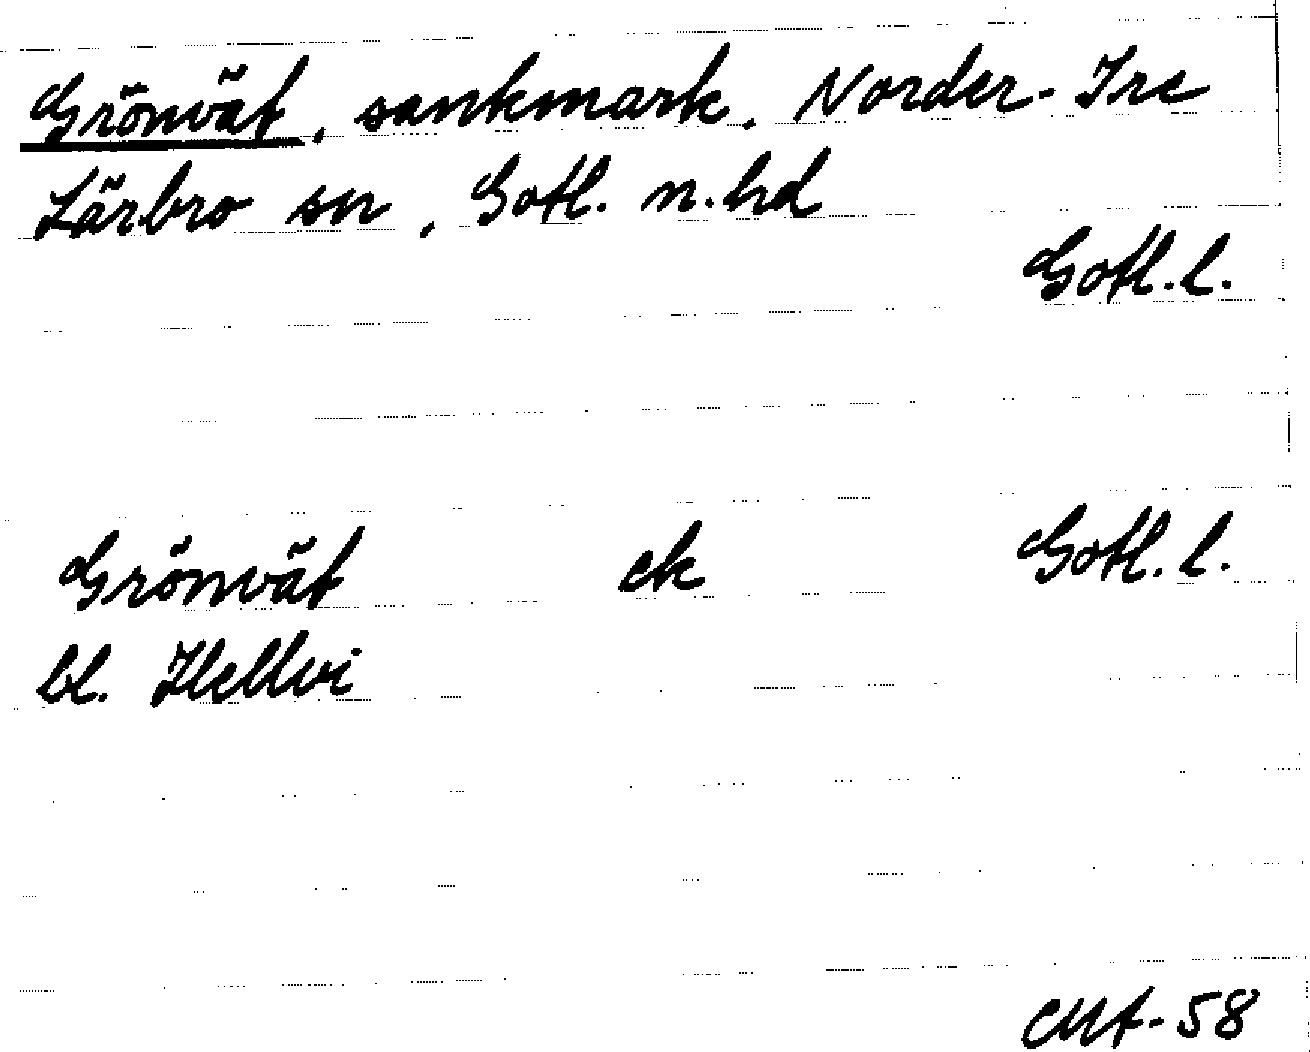 Grönvät, sankmark, Norder-Ire
Lärbro sn, Gotl. n. hd
Gotl. l.
Grönvät ek Gotl. l.
bl. Hellvi
-58